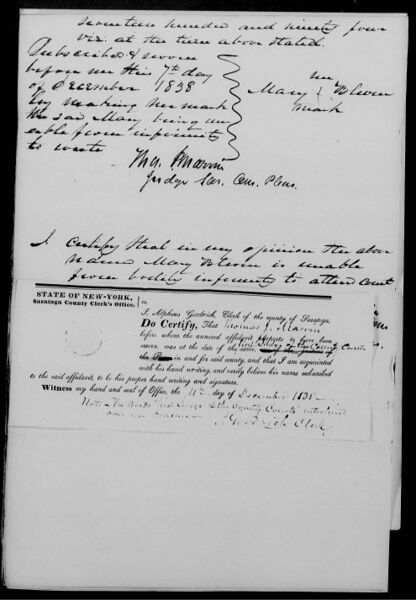 Seventeen hundred and ninety four
viz. at the time above stated.
Subscribed & sworn
before me this 7th day
of December 1838
by making her mark
the said Mary being un
able from infirmity
to write
her
Mary Blown
mark
Tho. J. Marvin
Judge Sar. Com. Pleas.
I certify that in my opinion the above
named Mary is unable
from bodily infirmity to attend Court
STATE OF NEW-YORK,
Saratoga County Clerk's Office,
ss.
I, Alpheus Goodrich, Clerk of the county of Saratoga,
Do Certify, That Thomas J. Marvin
before whom the annexed affidavit purports to have been
sworn, was at the date of the same, first Judge of the County Courts
in and for said county, and that I am acquainted
with his hand writing, and verily believe his name subscribed
to the said affidavit, to be his proper hand writing and signature.
Witness my hand and seal of Office, the day of December 1838
Note The Words first Judge of the County Courts interlined
A Goodrich Clerk